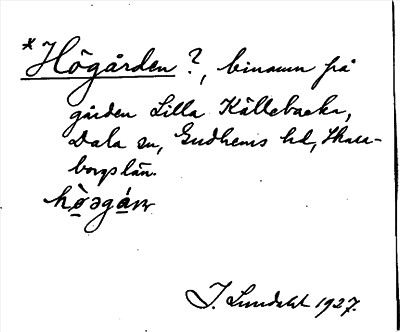 *Högården?, binamn på
gården Lilla Källebacka,
Dala sn, Gudhems hd, Skara-
borgs län.
J. Lundahl 1927.